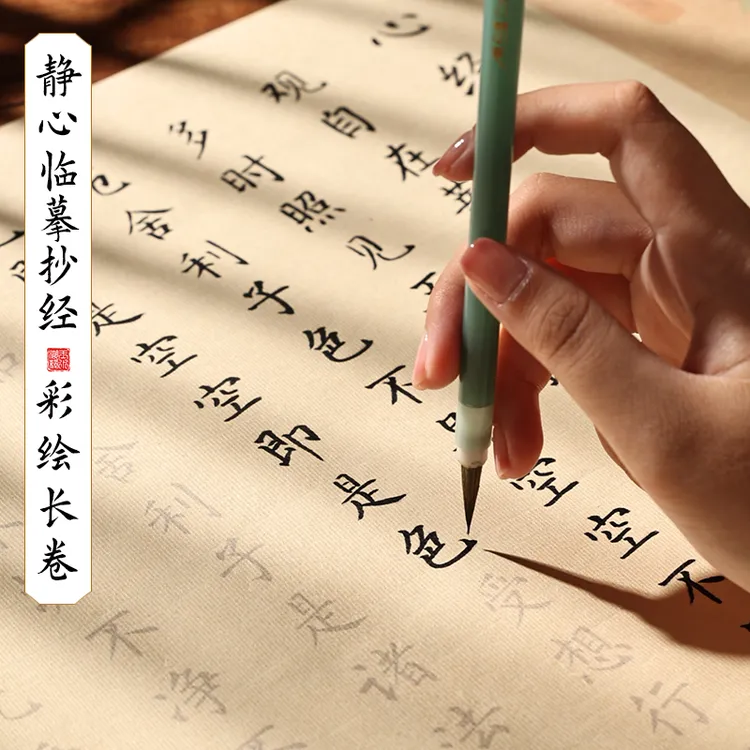 静心临摹抄经
彩绘长卷
心经
观自在菩
多时照见
舍利子色不空空不
是空空即是色受想行
舍利子是诸法
不净